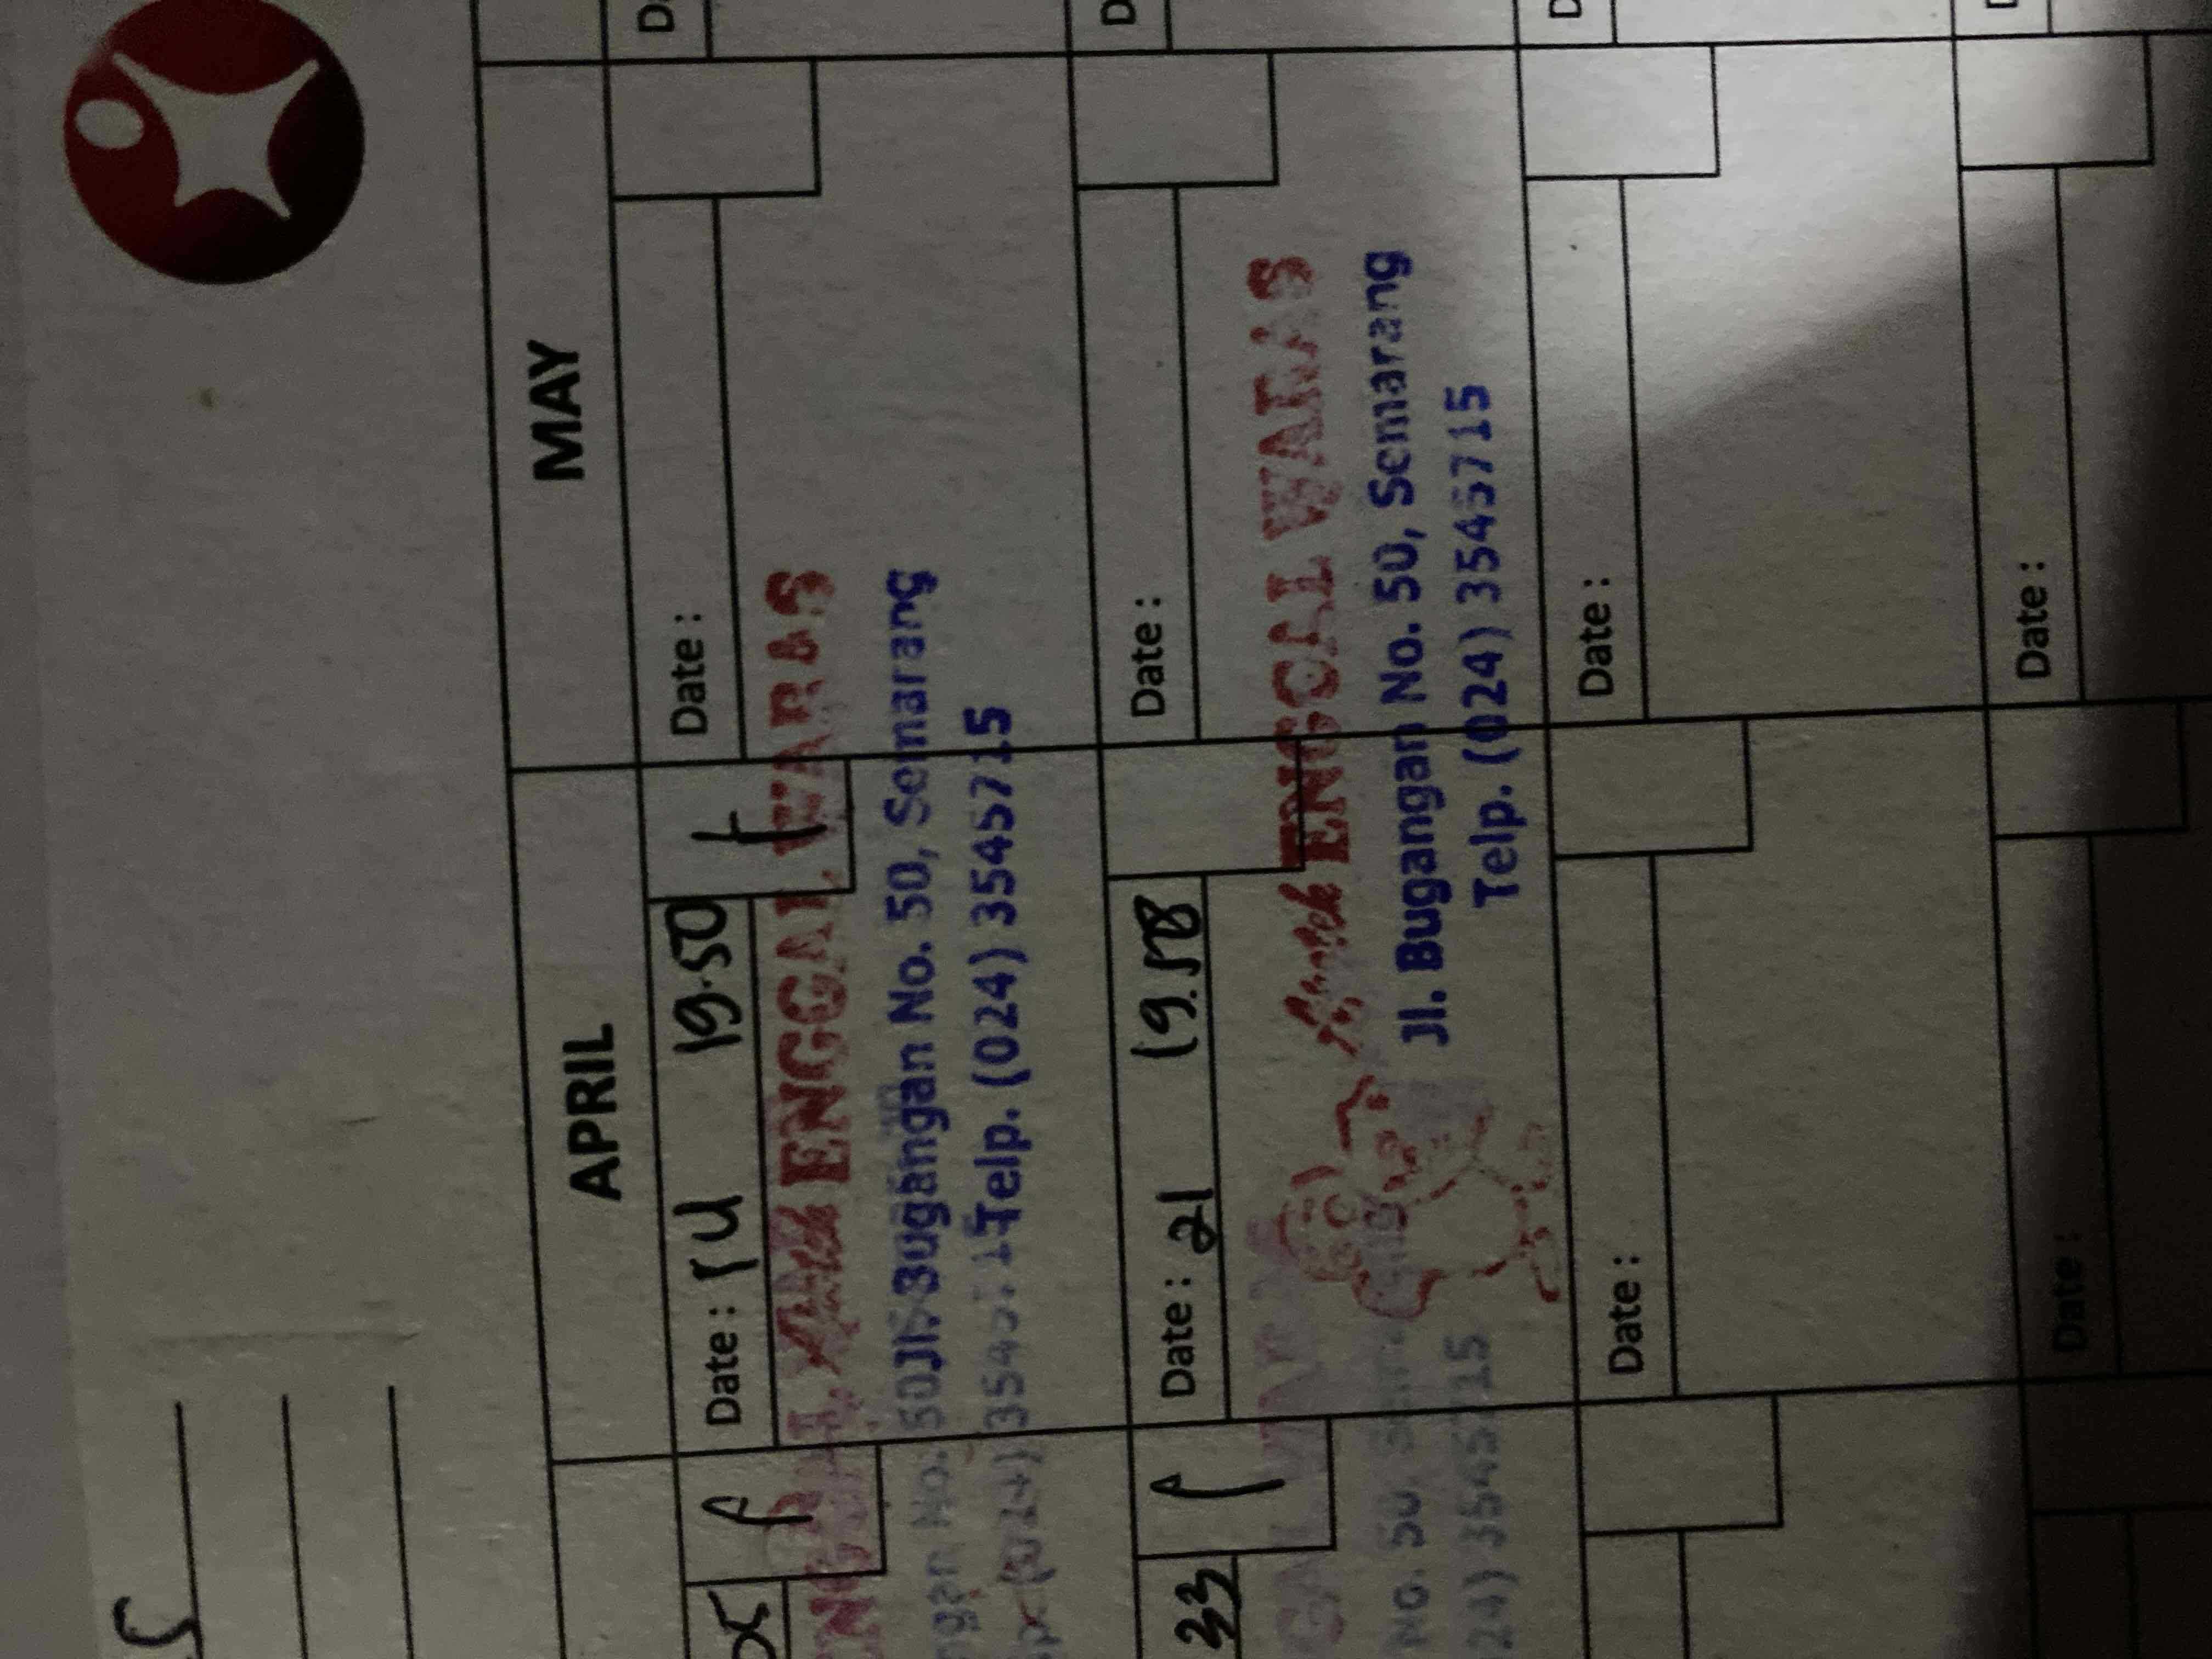 APRIL
MAY
Date : 14 19.50
Date :
ENGGAL WARAS
Jl. Bugangan No. 50, Semarang
Telp. (024) 3545715
33
Date : 21 19.58
Date :
Apotek ENGGAL WARAS
Jl. Bugangan No. 50, Semarang
Telp. (024) 3545715
Date :
Date :
Date :
Date :